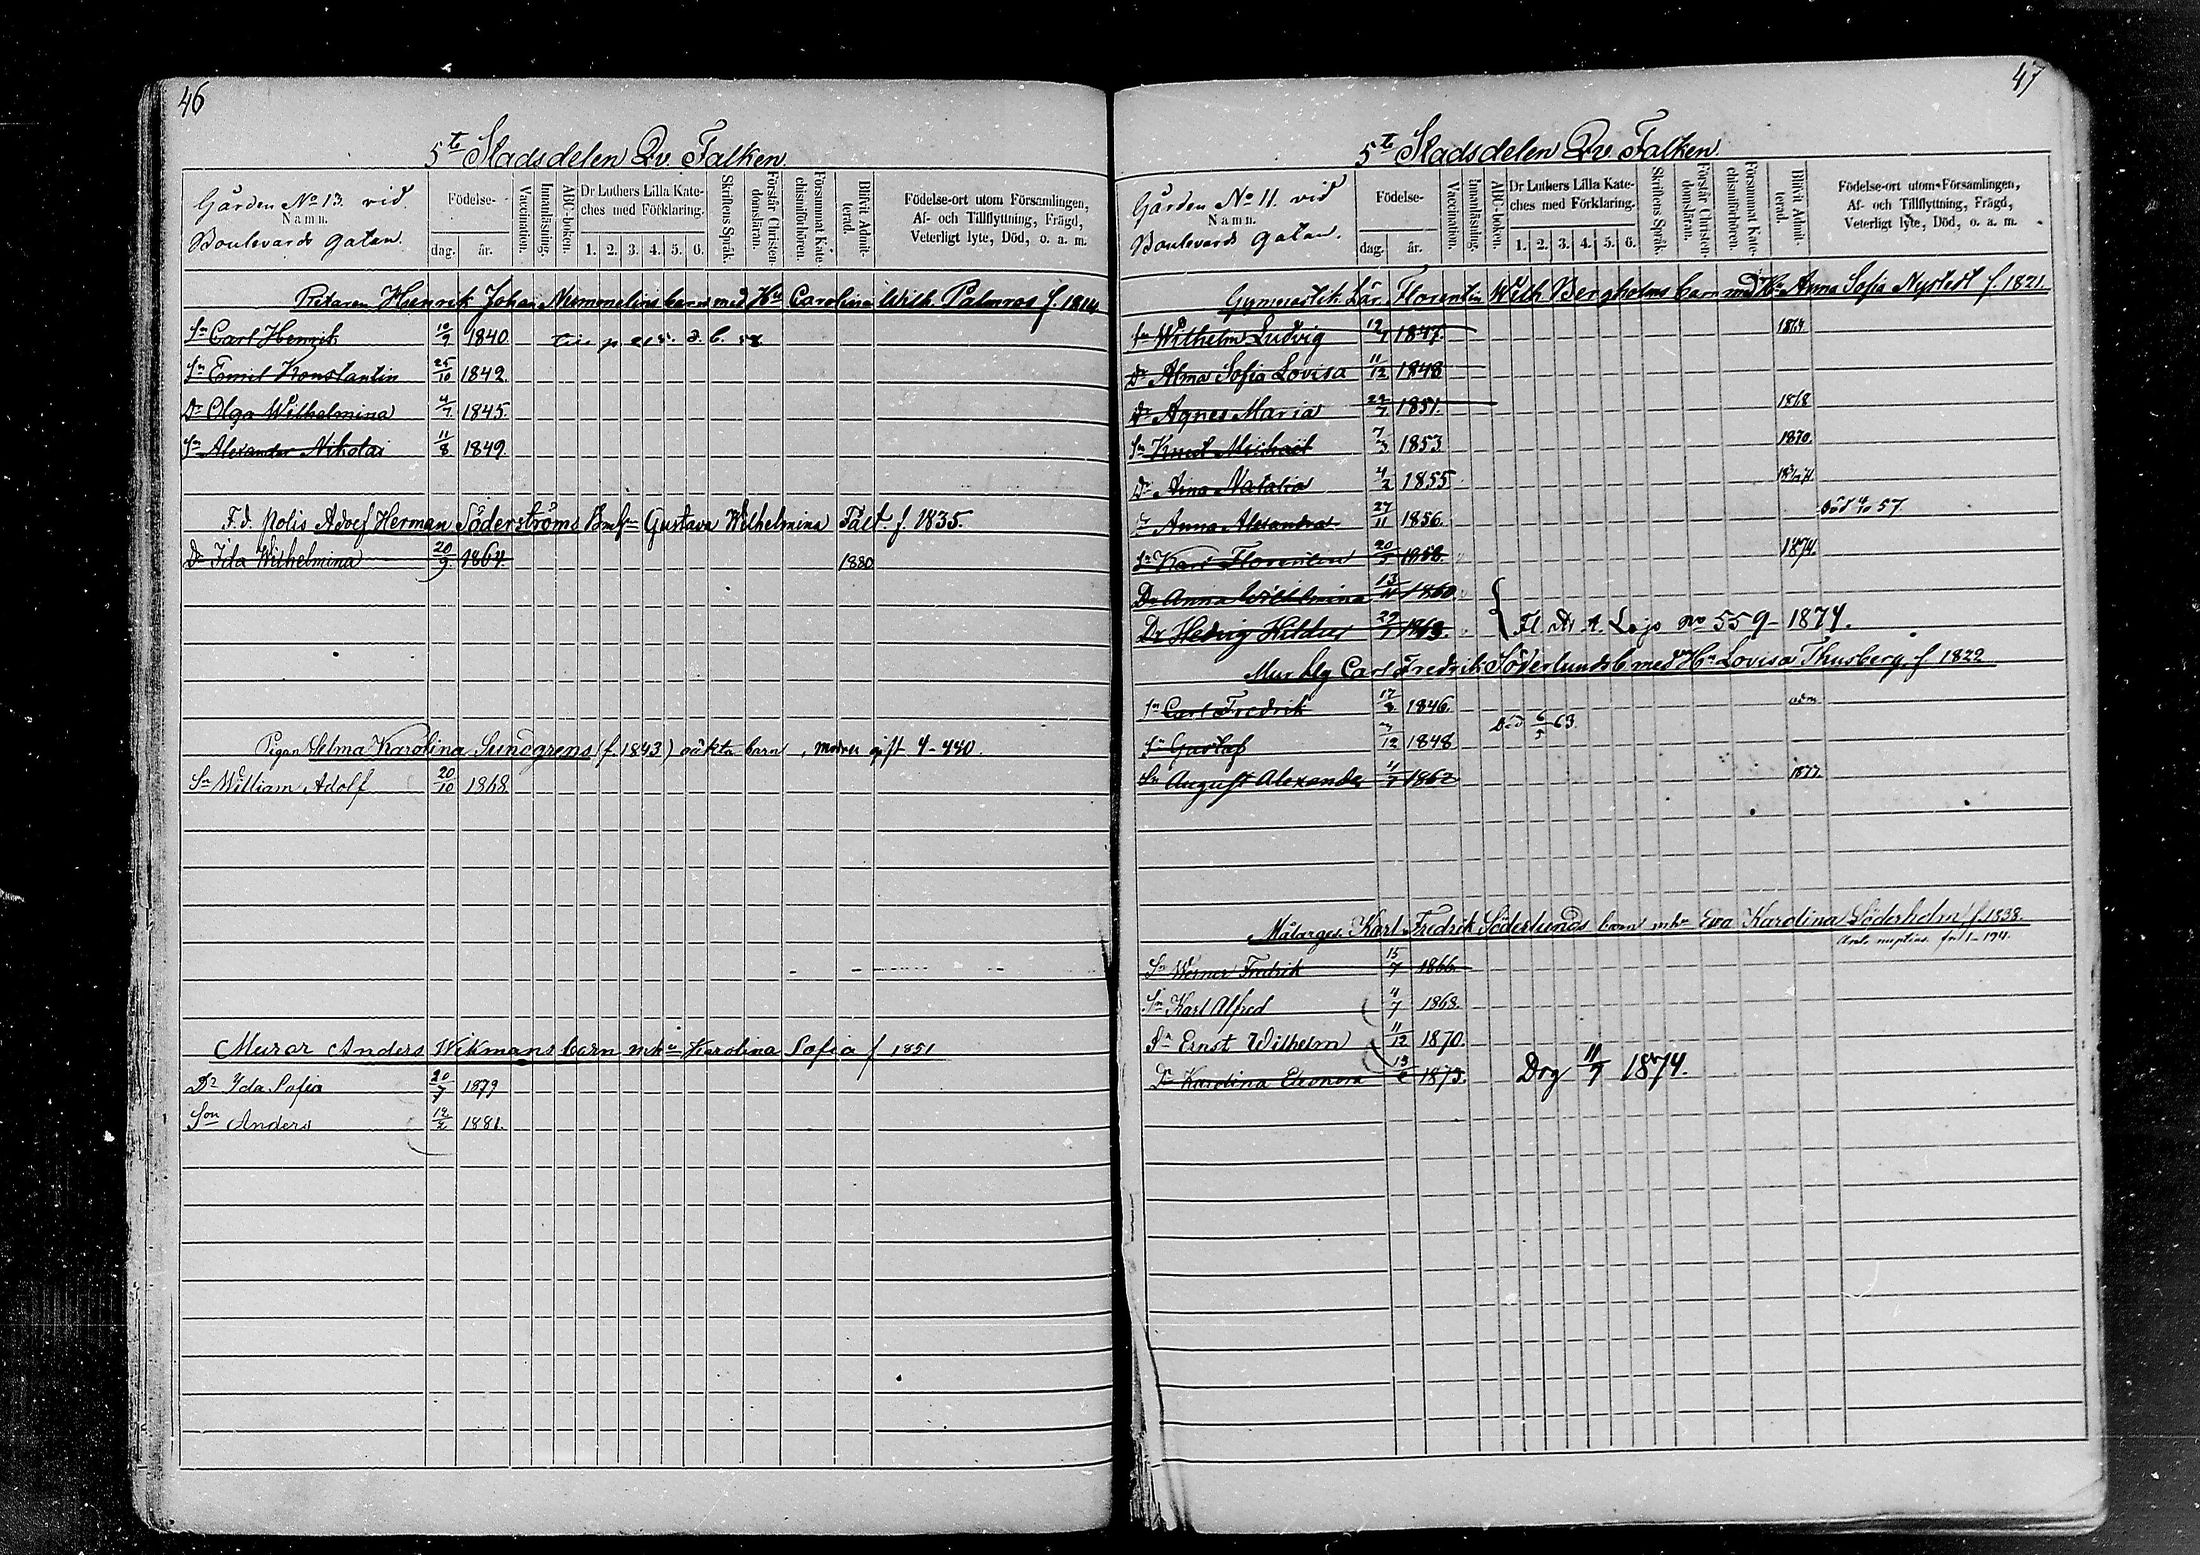 46
5te Stadsdelen Qv. Falken.
Gården No 13. vid
Namn.
Boulevards gatan.
Födelse-
dag.
år.
Vaccination.
Innanläsning.
ABC-boken.
Dr Luthers Lilla Kate-
ches med Förklaring.
1. 2. 3. 4. 5. 6.
Skriftens Språk.
Förstår Christen-
domsläran.
Försummat Kate-
chismiförhören.
Blifvit Admit-
terad.
Födelse-ort utom Församlingen,
Af- och Tillflyttning, Frägd,
Veterligt lyte, Död, o. a. m.
Henrik Johan Nummelins barn med Hu Carolina Wilh. Palmros f. 1814
Sn Carl Henrik 10/9 1840.
Sn Emil Konstantin 25/10 1842.
Dr Olga Wilhelmina 4/7 1845.
Sn Alexander Nikolai 11/8 1849.
F.d. Polis Adolf Herman Söderströms Gustava Wilhelmina Tält f. 1835.
Dr Ida Wilhelmina 20/9 1864. 1880
Pigan Selma Karolina Sundgrens (f. 1843) oäkta barn, modren gift 4-440.
Sn William Adolf 20/10 1868.
Murar Anders Wikmans barn m hu Karolina Sofia f 1851
Dr Ida Sofia 20/7 1879
Son Anders 12/2 1881.
47
5te Stadsdelen Qv. Falken.
Gården No 11. vid
Namn.
Boulevards gatan.
Födelse-
dag.
år.
Vaccination.
Innanläsning.
ABC-boken.
Dr Luthers Lilla Kate-
ches med Förklaring.
1. 2. 3. 4. 5. 6.
Skriftens Språk.
Förstår Christen-
domsläran.
Försummat Kate-
chismiförhören.
Blifvit Admit-
terad.
Födelse-ort utom Församlingen,
Af- och Tillflyttning, Frägd,
Veterligt lyte, Död, o. a. m.
Gymnastik Lär. Florentin Wilh Bergholms barn med Hu Anna Sofia Nystedt f. 1821.
Sn Wilhelm Ludvig 12/4 1847. 1864
Dr Alma Sofia Lovisa 11/12 1848
Dr Agnes Maria 22/7 1851. 1868
Sn Knut Michael 7/3 1853 1870.
Dr Aina Natalia 4/2 1855
Anna Alexandra 27/11 1856. Död 57.
Sn Karl Florentin 20/5 1858. 1874.
Dr Anna Wilhelmina 13/11 1860.
Dr Hedvig Hildur 1863. Fl. Lojo No 559-1874.
Carl Fredrik Söderlunds b. med Hu Lovisa Thusberg f 1822
Sn Carl Fredrik 17/3 1846. adm
Sn Gustaf 1848 Död 6/5 63.
Sn August Alexander 1862 1877
Målarges. Karl Fredrik Söderlunds barn m hu Eva Karolina Söderholm f. 1838.
Ante nuptias fr 1-194.
Sn Werner Fredrik 15/7 1866
Sn Karl Alfred 4/7 1868.
Sn Ernst Wilhelm 11/12 1870.
Dr Karolina Eleonora 1873. Dog 11/7 1874.